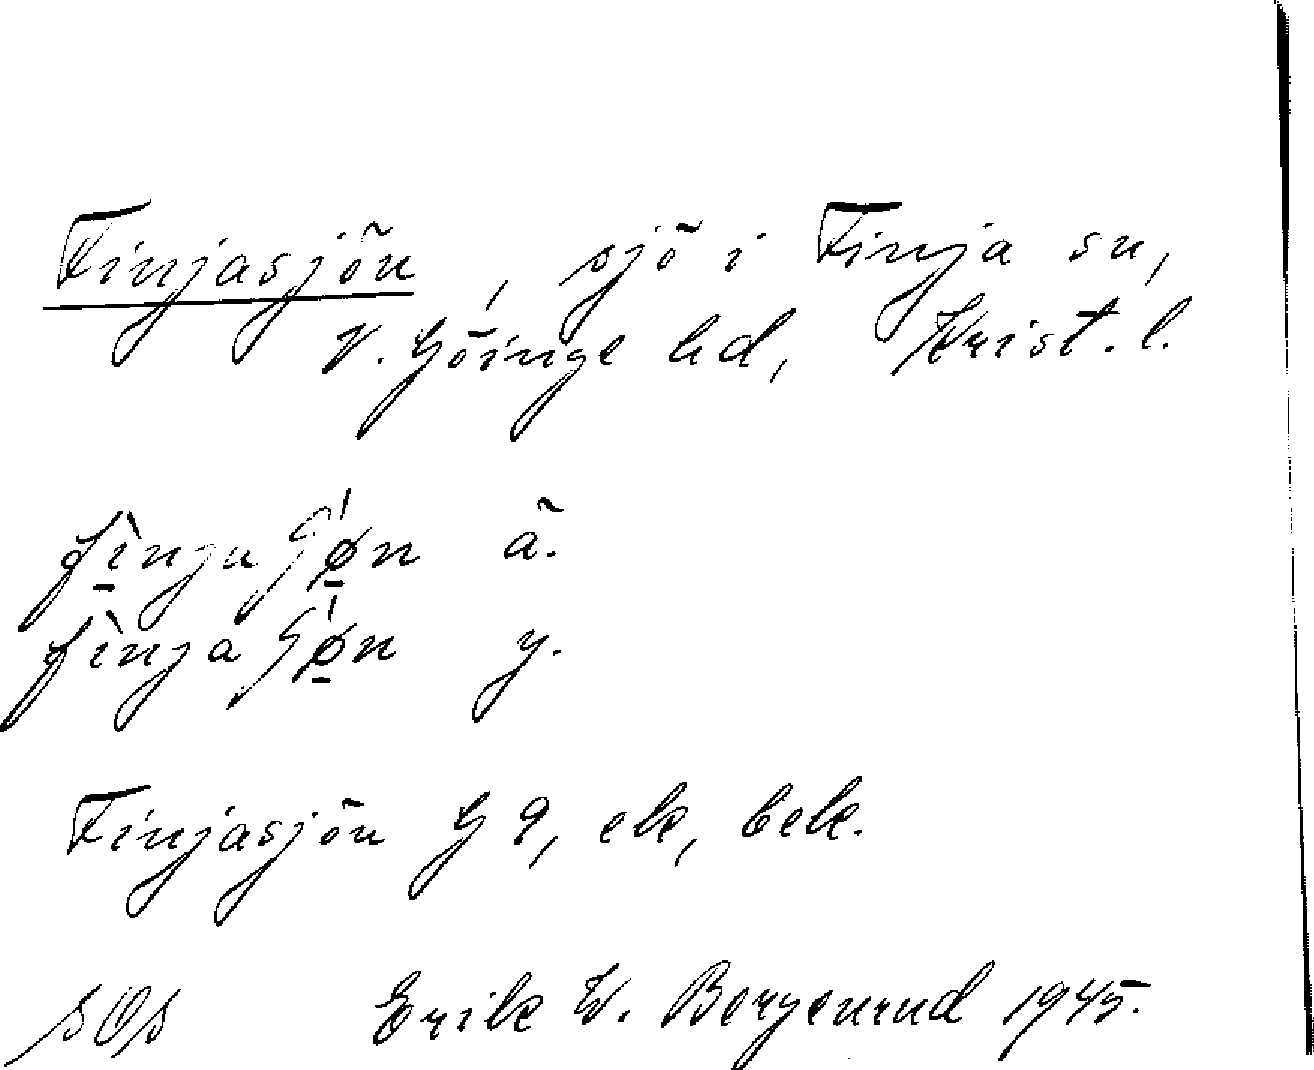 Finjasjön, sjö i Finja sn,
V. Göinge hd, Krist. l.
ä.
y.
Finjasjön G 9, ek, bek.
SOS Erik W. Bergenrud 1945.